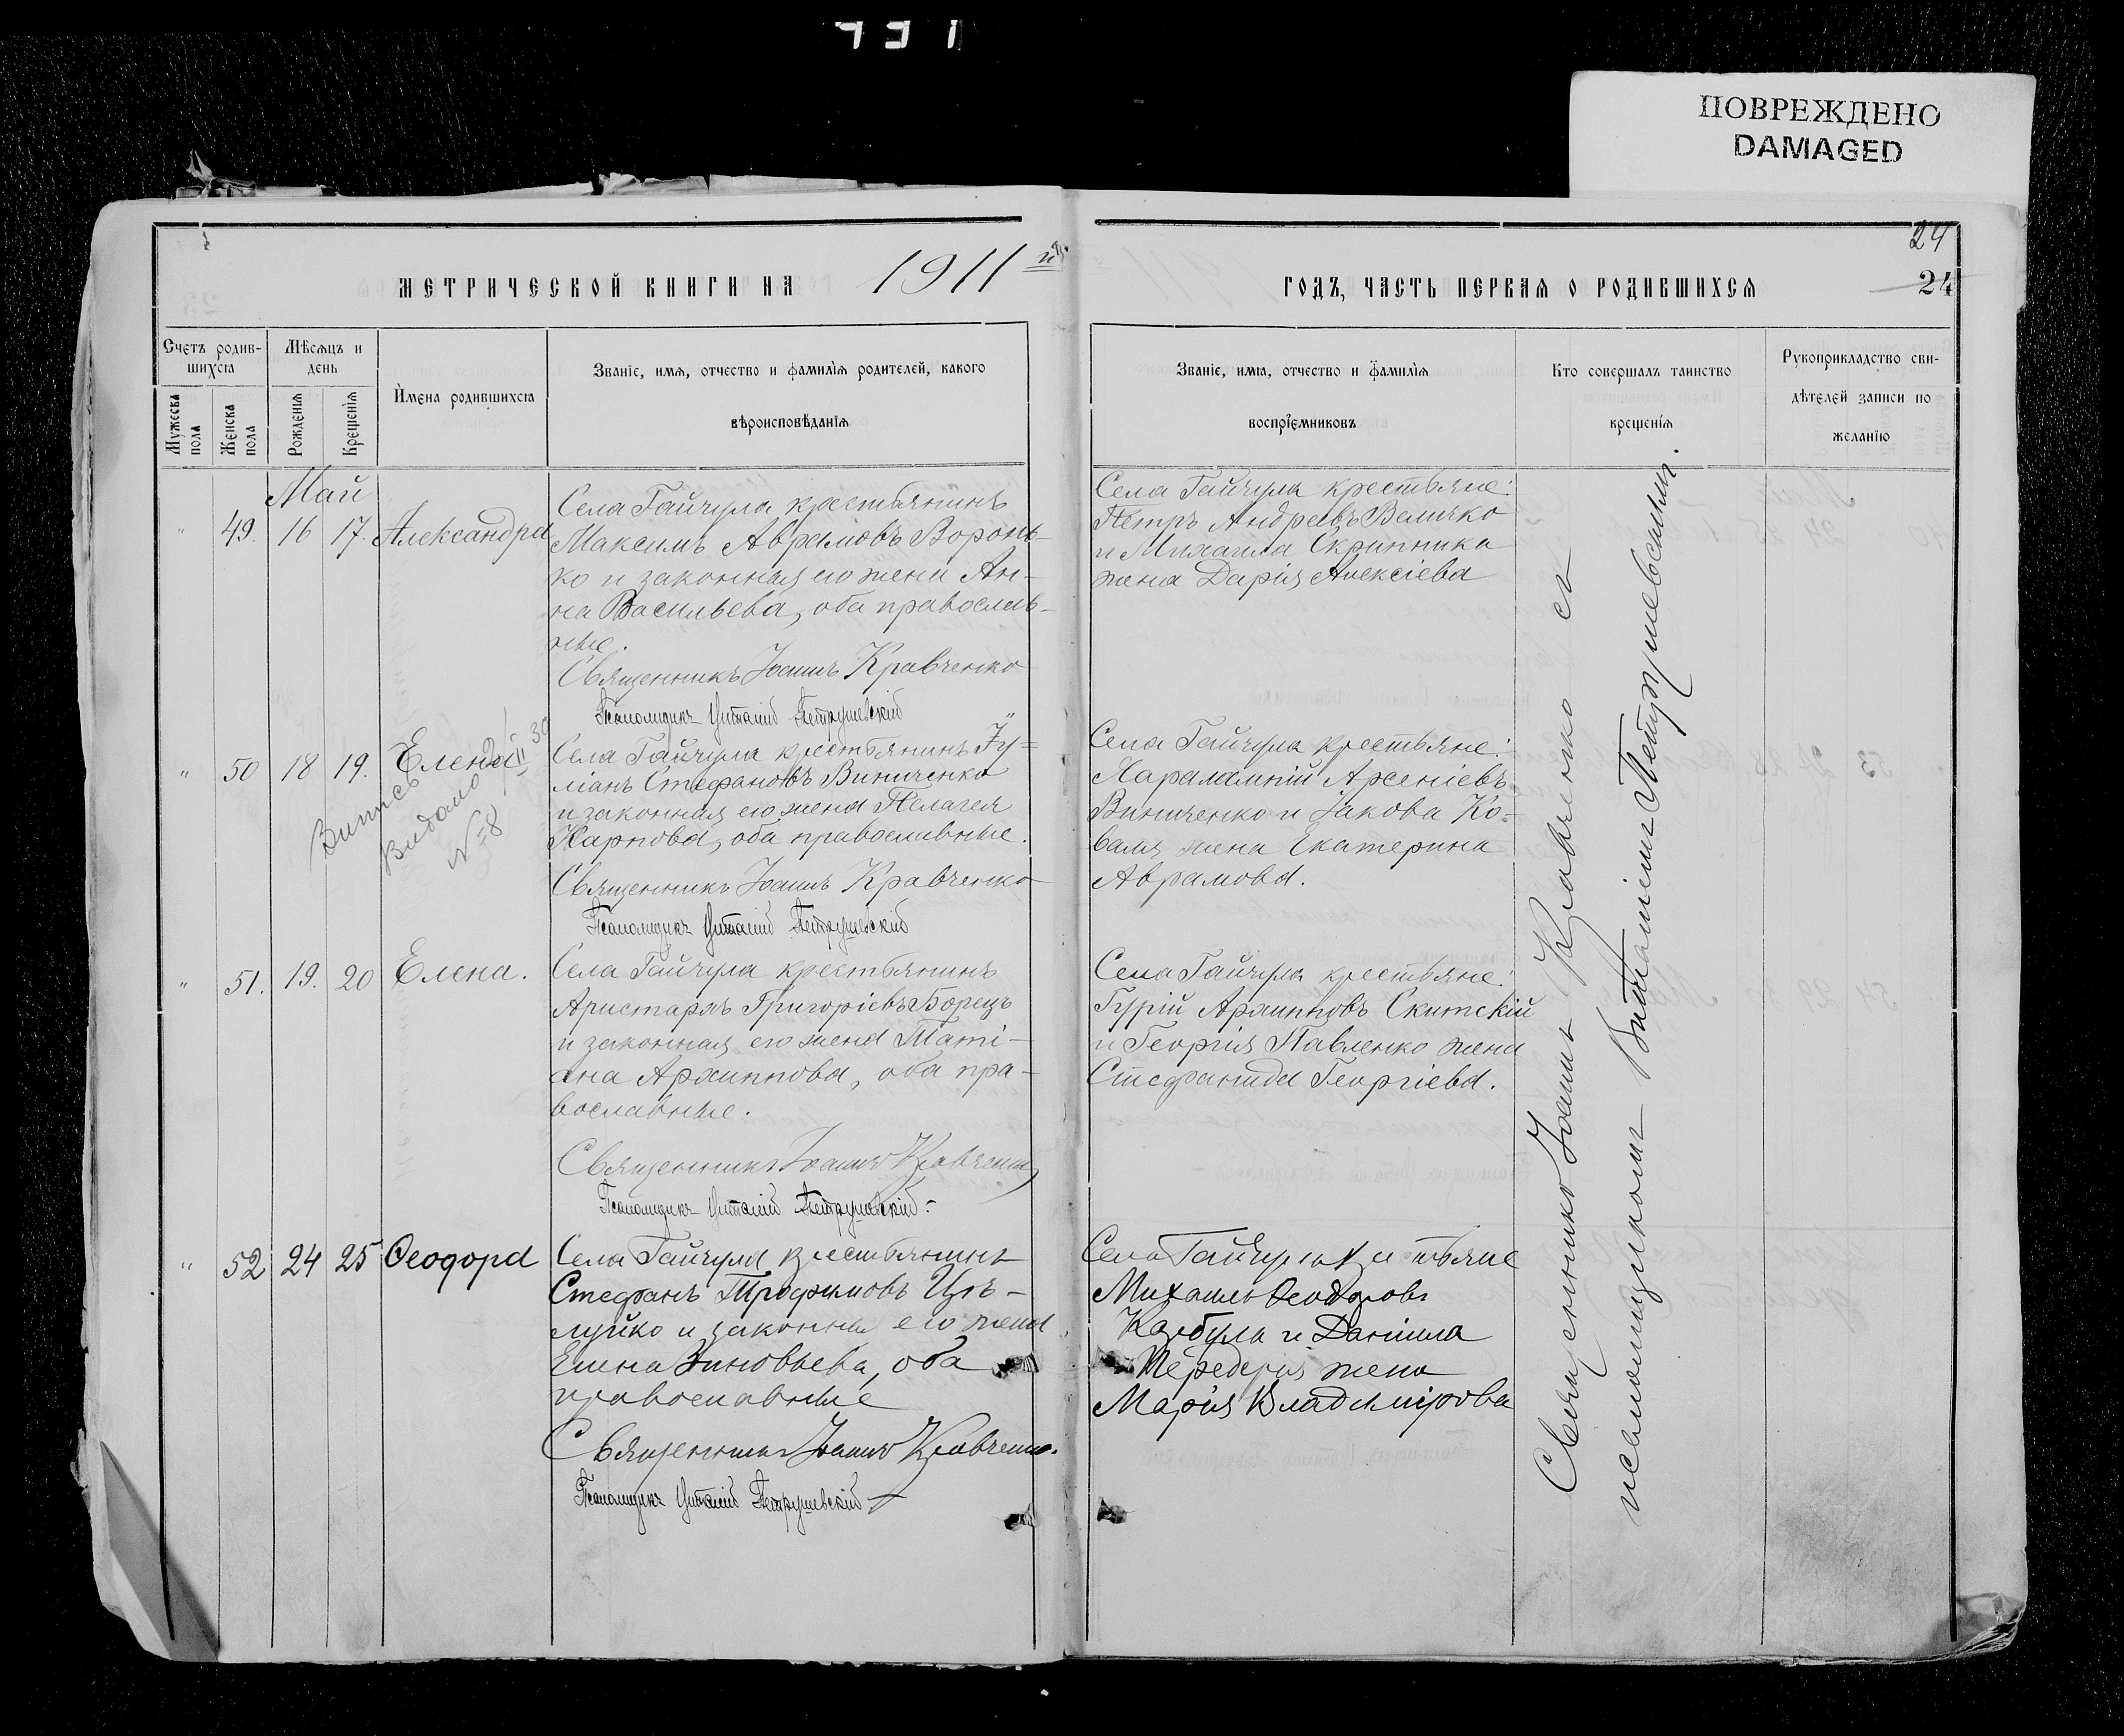 431
ПОВРЕЖДЕНО
DAMAGED
МЕТРИЧЕСКОЙ КНИГИ НА 1911й
ГОДЪ, ЧАСТЬ ПЕРВАЯ О РОДИВШИХСЯ
24
24
Счетъ родив-
шихся
Мужеска пола
Женска пола
Мѣсяцъ и
день
Рожденія
Крещенія
Имена родившихся
Званіе, имя, отчество и фамилія родителей, какого
вѣроисповѣданія
Званіе, имя, отчество и фамилія
воспріемниковъ
Кто совершалъ таинство
крещенія
Рукоприкладство сви-
дѣтелей записи по
желанію
Май
" 49. 16 17. Александра
Села Гайчула крестьянинъ
Максимъ Аврамовъ Воронь-
ко и законная его жена Ан-
на Васильева, оба православ-
ные.
Священникъ Іоаннъ Кравченко
Псаломщикъ Виталій Петрушевскій
Села Гайчула крестьяне:
Петръ Андреевъ Величко
и Михаила Скрипника
жена Дарія Алексіева
" 50 18 19. Елена
Витись
Видано
№8
Села Гайчула крестьянинъ Іу=
ліанъ Стефановъ Виниченко
и законная его жена Пелагея
Карпова, оба православные.
Священникъ Іоаннъ Кравченко
Псаломщикъ Виталій Петрушевскій
Села Гайчула крестьяне:
Харалампій Арсеніевъ
Виниченко и Іакова Ко=
валя жена Екатерина
Аврамова.
" 51. 19. 20 Елена.
Села Гайчула крестьянинъ
Аристархъ Григоріевъ Борецъ
и законная его жена Таті-
ана Архиппова, оба пра-
вославные.
Священникъ Іоаннъ Кравченко
Псаломщикъ Виталій Петрушевскій
Села Гайчула крестьяне:
Гурій Архипповъ Скитскій
и Георгія Павленко жена
Стефанида Георгіева.
" 52 24 25 Ѳеодора
Села Гайчула крестьянинъ
Стефанъ Трофимовъ Цѣ-
луйко и законная его жена
Елена Зиновьева, оба
православные
Священникъ Іоаннъ Кравченко.
Псаломщикъ Виталій Петрушевскій
Села Гайчула крестьяне
Михаилъ Ѳеодоровъ
и Даніила
Передерія жена
Марія Владимірова
Священникъ Іоаннъ Кравченко съ
псаломщикомъ Виталіемъ Петрушевскимъ.